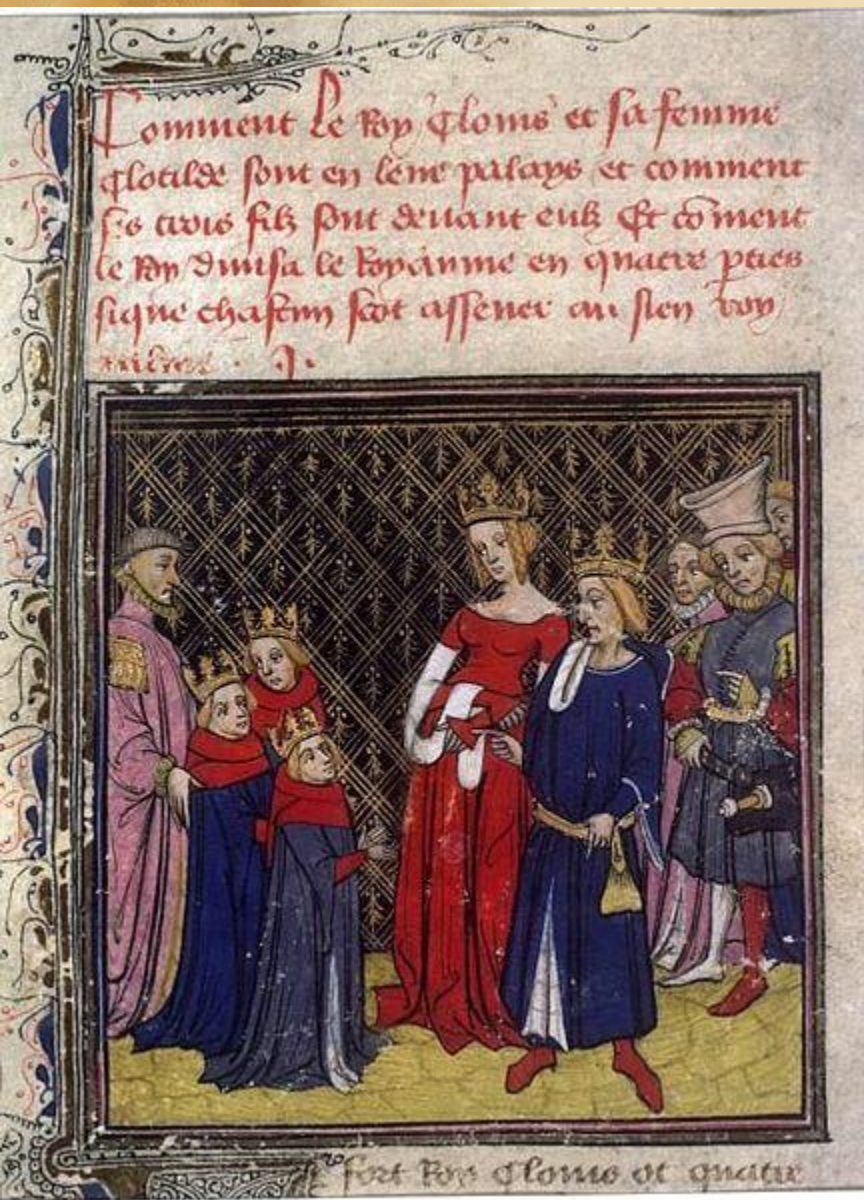 Comment Le Roy Clouis et sa femme
Clotilde sont en leur palays et comment
ses trois filz sont deuant eulx Et cõment
le Roy diuisa le Royaume en quatre pties
sique chascun scot assener au sien roy
aulme . I.
fort Roy Clouis ot quatre